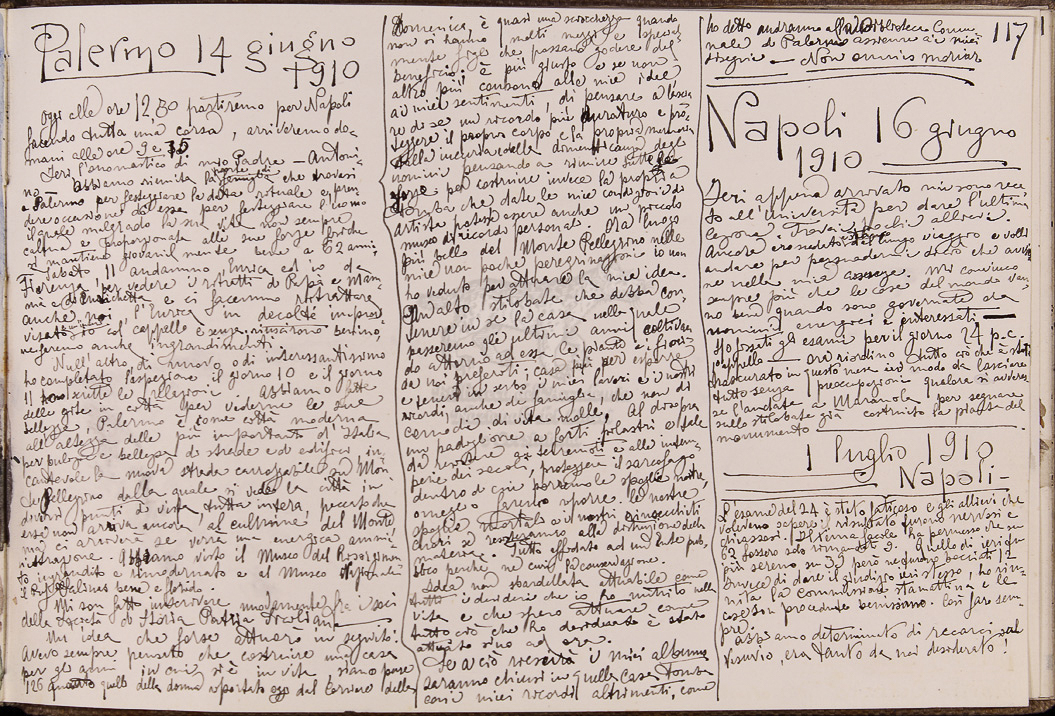 Palermo 14 giugno
1910
Oggi alle ore 12,30 partiremo per Napoli
facendo tutta una corsa, arriveremo do-
mani alle ore 9 e 35
Ieri l'onomastico di mio Padre — Antoni-
no — abbiamo riunita la famiglia che trovasi
a Palermo per festeggiare la data
dere occasione da essa per festeggiare l'uomo
il quale malgrado la sua vita non sempre
calma e proporzionata alle sue forze fisiche
si mantiene giovanilmente bene a 62 anni,
Sabato 11 andammo Enrica ed io da
Fiorenza per vedere i ritratti di Papà e Mam-
ma e di Enrichetta e ci facemmo ritrattare
anche noi l'Enrica in decoltè improv-
visato io col cappello e senza, riuscirono benino,
ne faremo anche ingrandimenti.
Null'altro di nuovo o di interessantissimo
ho completato l'ispezione il giorno 10 e il giorno
11 scritte le relazioni. Abbiamo fatte
delle gite in città per vederne le sue
bellezze, Palermo è come città moderna
all'altezza delle più importanti d'Italia
per pulizia e bellezza di strade e di edifici, in-
cantevole la nuova strada carrozzabile sul Mon-
te Pellegrino dalla quale si vede la città in
diversi punti di vista, tutta intera, peccato che
essa non arriva ancora al culmine del Monte
ma ci arriverà se verrà una energica ammi-
nistrazione. Abbiamo visto il Museo del Risorgimen-
to ingrandito e rimodernato e il Museo Nazionale
il bel Salinas bene e florido.
Mi son fatto inscrivere modernamente fra i soci
della Società di Storia Patria Siciliana.
Un'idea che forse attuerò in seguito:
Avevo sempre pensato che costruire una casa
per gli anni in cui si è in vita siano pure
126 quanto quelli della donna riportata oggi dal Corriere della
Domenica, è quasi una sciocchezza quando
non si hanno molti mezzi e special-
mente figli che possano godere del
beneficio; è più giusto e se non
altro più consono alle mie idee
ai miei sentimenti, di pensare a lascia-
re di sè un ricordo più duraturo e pro-
teggere il proprio corpo e la propria memoria
dalla incertezza della dimenticanza degli
uomini pensando a riunire tutte le
forze per costruire invece la propria
tomba che date le mie condizioni di
artista potesse essere anche un piccolo
museo di ricordi personali. Ora luogo
più bello del Monte Pellegrino nelle
mie non poche peregrinazioni io non
ho veduto per attuare la mia idea.
Un alto stilobate che debba con-
tenere in sè la casa nella quale
passeremo gli ultimi anni coltivan-
do attorno ad essa le piante e i fiori
da noi preferiti; casa più per esporre
e tenere in serbo i miei lavori e i nostri
ricordi, anche di famiglia, che non di
comodi di vita molle. Al disopra
un padiglione a forti pilastri e tale
da resistere ai terremoti e alle intem-
perie dei secoli, protegga il sarcofago
dentro di cui porremo le spoglie nostre,
omeglio saranno riposte le nostre
spoglie mortali ai nostri
cuori se resteranno alla distruzione della
materia. Tutto affidato ad un Ente pub-
blico perchè ne curi la conservazione.
Idea non sbardellata attuabile come
tutti i desideri che io ho nutrito nella
vita e che spero attuare come
tutto ciò che ho desiderato è stato
attuato sino ad ora.
Se a ciò riuscirò i miei albums
saranno chiusi in quella Casa Tomba
con i miei ricordi altrimenti, come
ho detto andranno alla Biblioteca Comu-
nale di Palermo assieme ai miei
disegni — Non omnis moriar
117
Napoli 16 giugno
1910
Ieri appena arrivato mi sono reca-
to all'Università per dare l'ultima
lezione e trovai pochi allievi.
Ancora ero sedotto dal lungo viaggio e volli
andare per persuadermi di ciò che avvie-
ne nella mia assenza. Mi convinco
sempre più che le cose del mondo van-
no bene quando sono governate da
uomini energici e interessati —
Ho fissati gli esami per il giorno 24 p.c.
l'appello — ora riordino tutto ciò che è stato
trascurato in questo mese in modo da lasciare
tutto senza preoccupazioni qualora si avveras-
se l'andata a Maranola per segnare
sullo stilobate già costruito la pianta del
monumento
1 luglio 1910
Napoli —
L'esame del 24 è stato faticoso e gli allievi che
volevano sapere il risultato furono nervosi e
chiassosi. Il tema facile ha permesso che su
62 fossero solo rimandati 9. Quello di ieri fu
più sereno su 37 però ne furono bocciati 12
invece di dare il giudizio ieri stesso, ho riu-
nita la commissione stamattina e le
cose son procedute benissimo. Così farò sem-
pre.
Abbiamo determinato di recarci sul
Vesuvio, era tanto da noi desiderato!